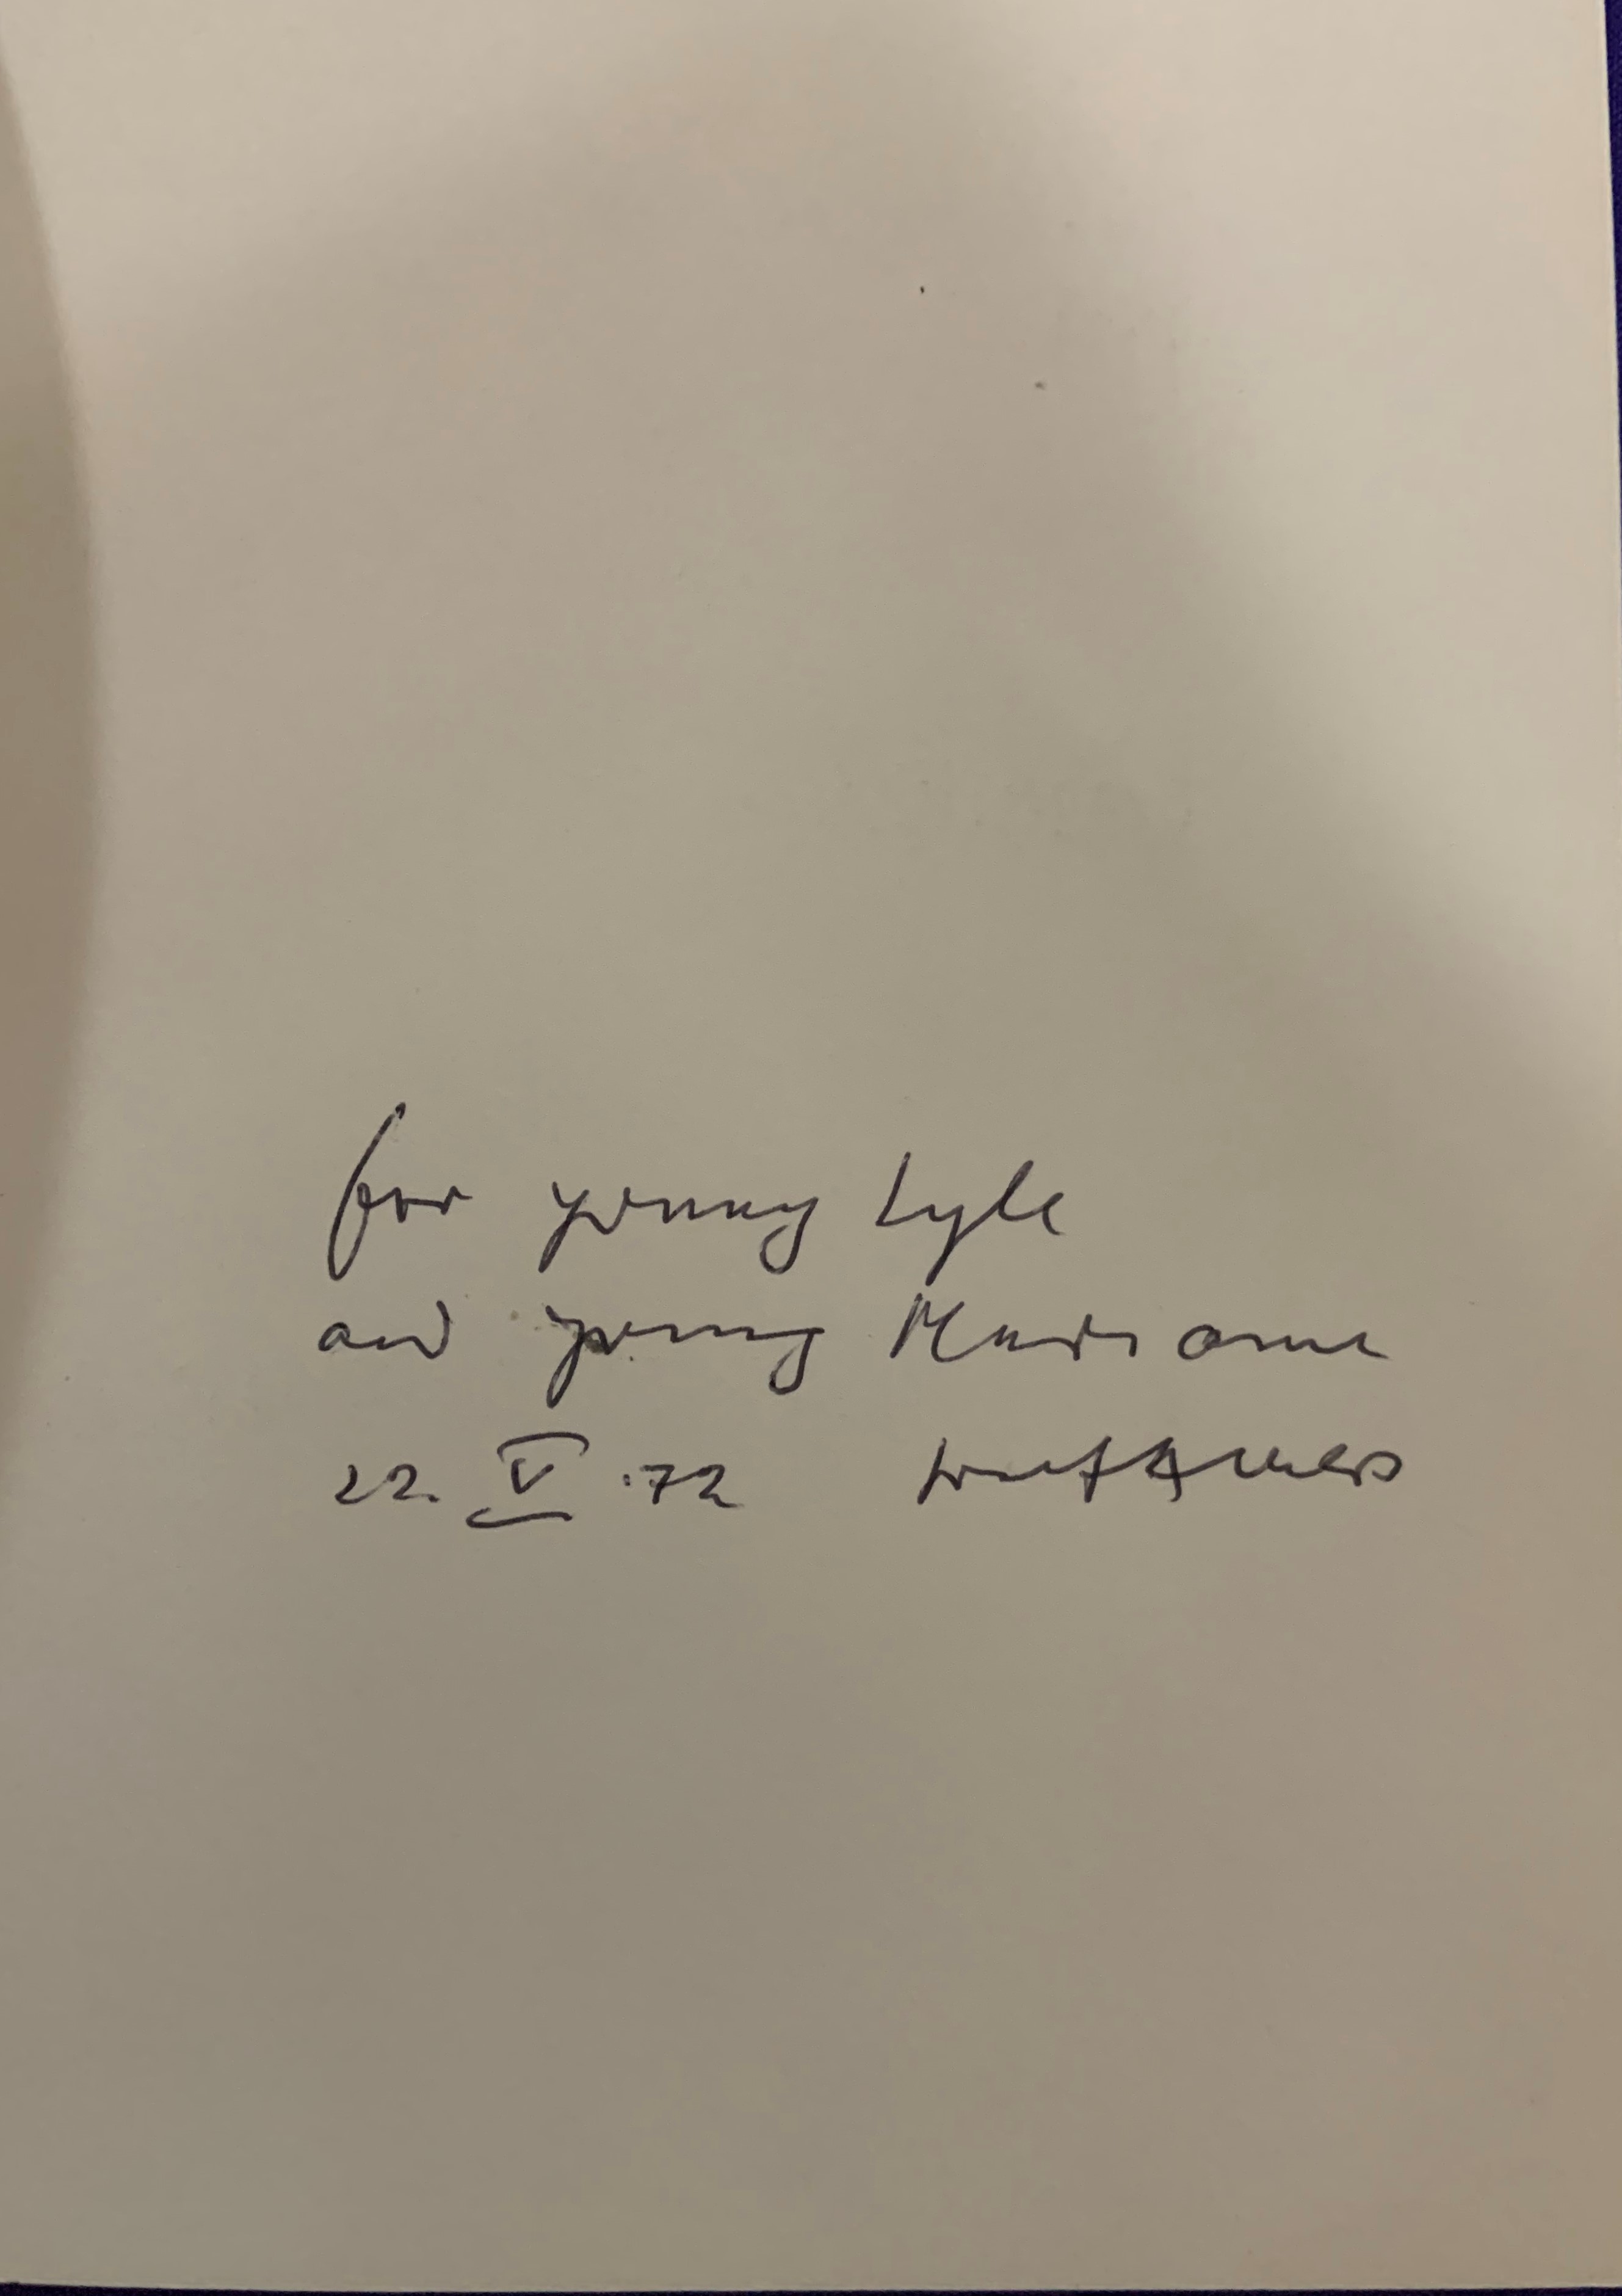 for young Lyle
and young Marianne
22. V .72